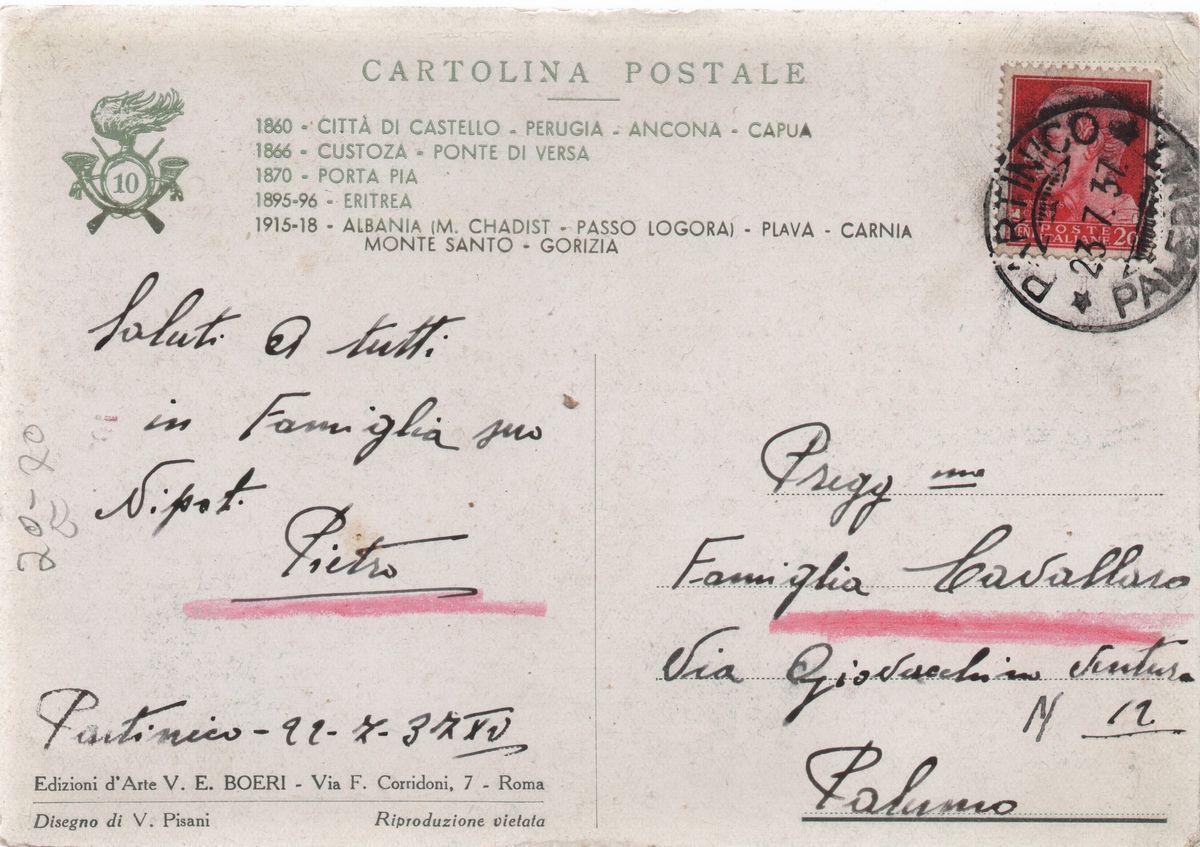 CARTOLINA POSTALE
10
1860 - CITTÀ DI CASTELLO - PERUGIA - ANCONA - CAPUA
1866 - CUSTOZA - PONTE DI VERSA
1870 - PORTA PIA
1895-96 - ERITREA
1915-18 - ALBANIA (M. CHADIST - PASSO LOGORA) - PLAVA - CARNIA
MONTE SANTO - GORIZIA
POSTE
ITALIANE 20
PARTINICO
23.7.37
PALERMO
Saluti a tutti
in Famiglia suo
Nipot.
Pietro
20-20
Partinico - 22-7-37 XV
Pregg ma
Famiglia Cavallaro
Via Giovacchino Ventura
N 12
Palermo
Edizioni d'Arte V. E. BOERI - Via F. Corridoni, 7 - Roma
Disegno di V. Pisani
Riproduzione vietata